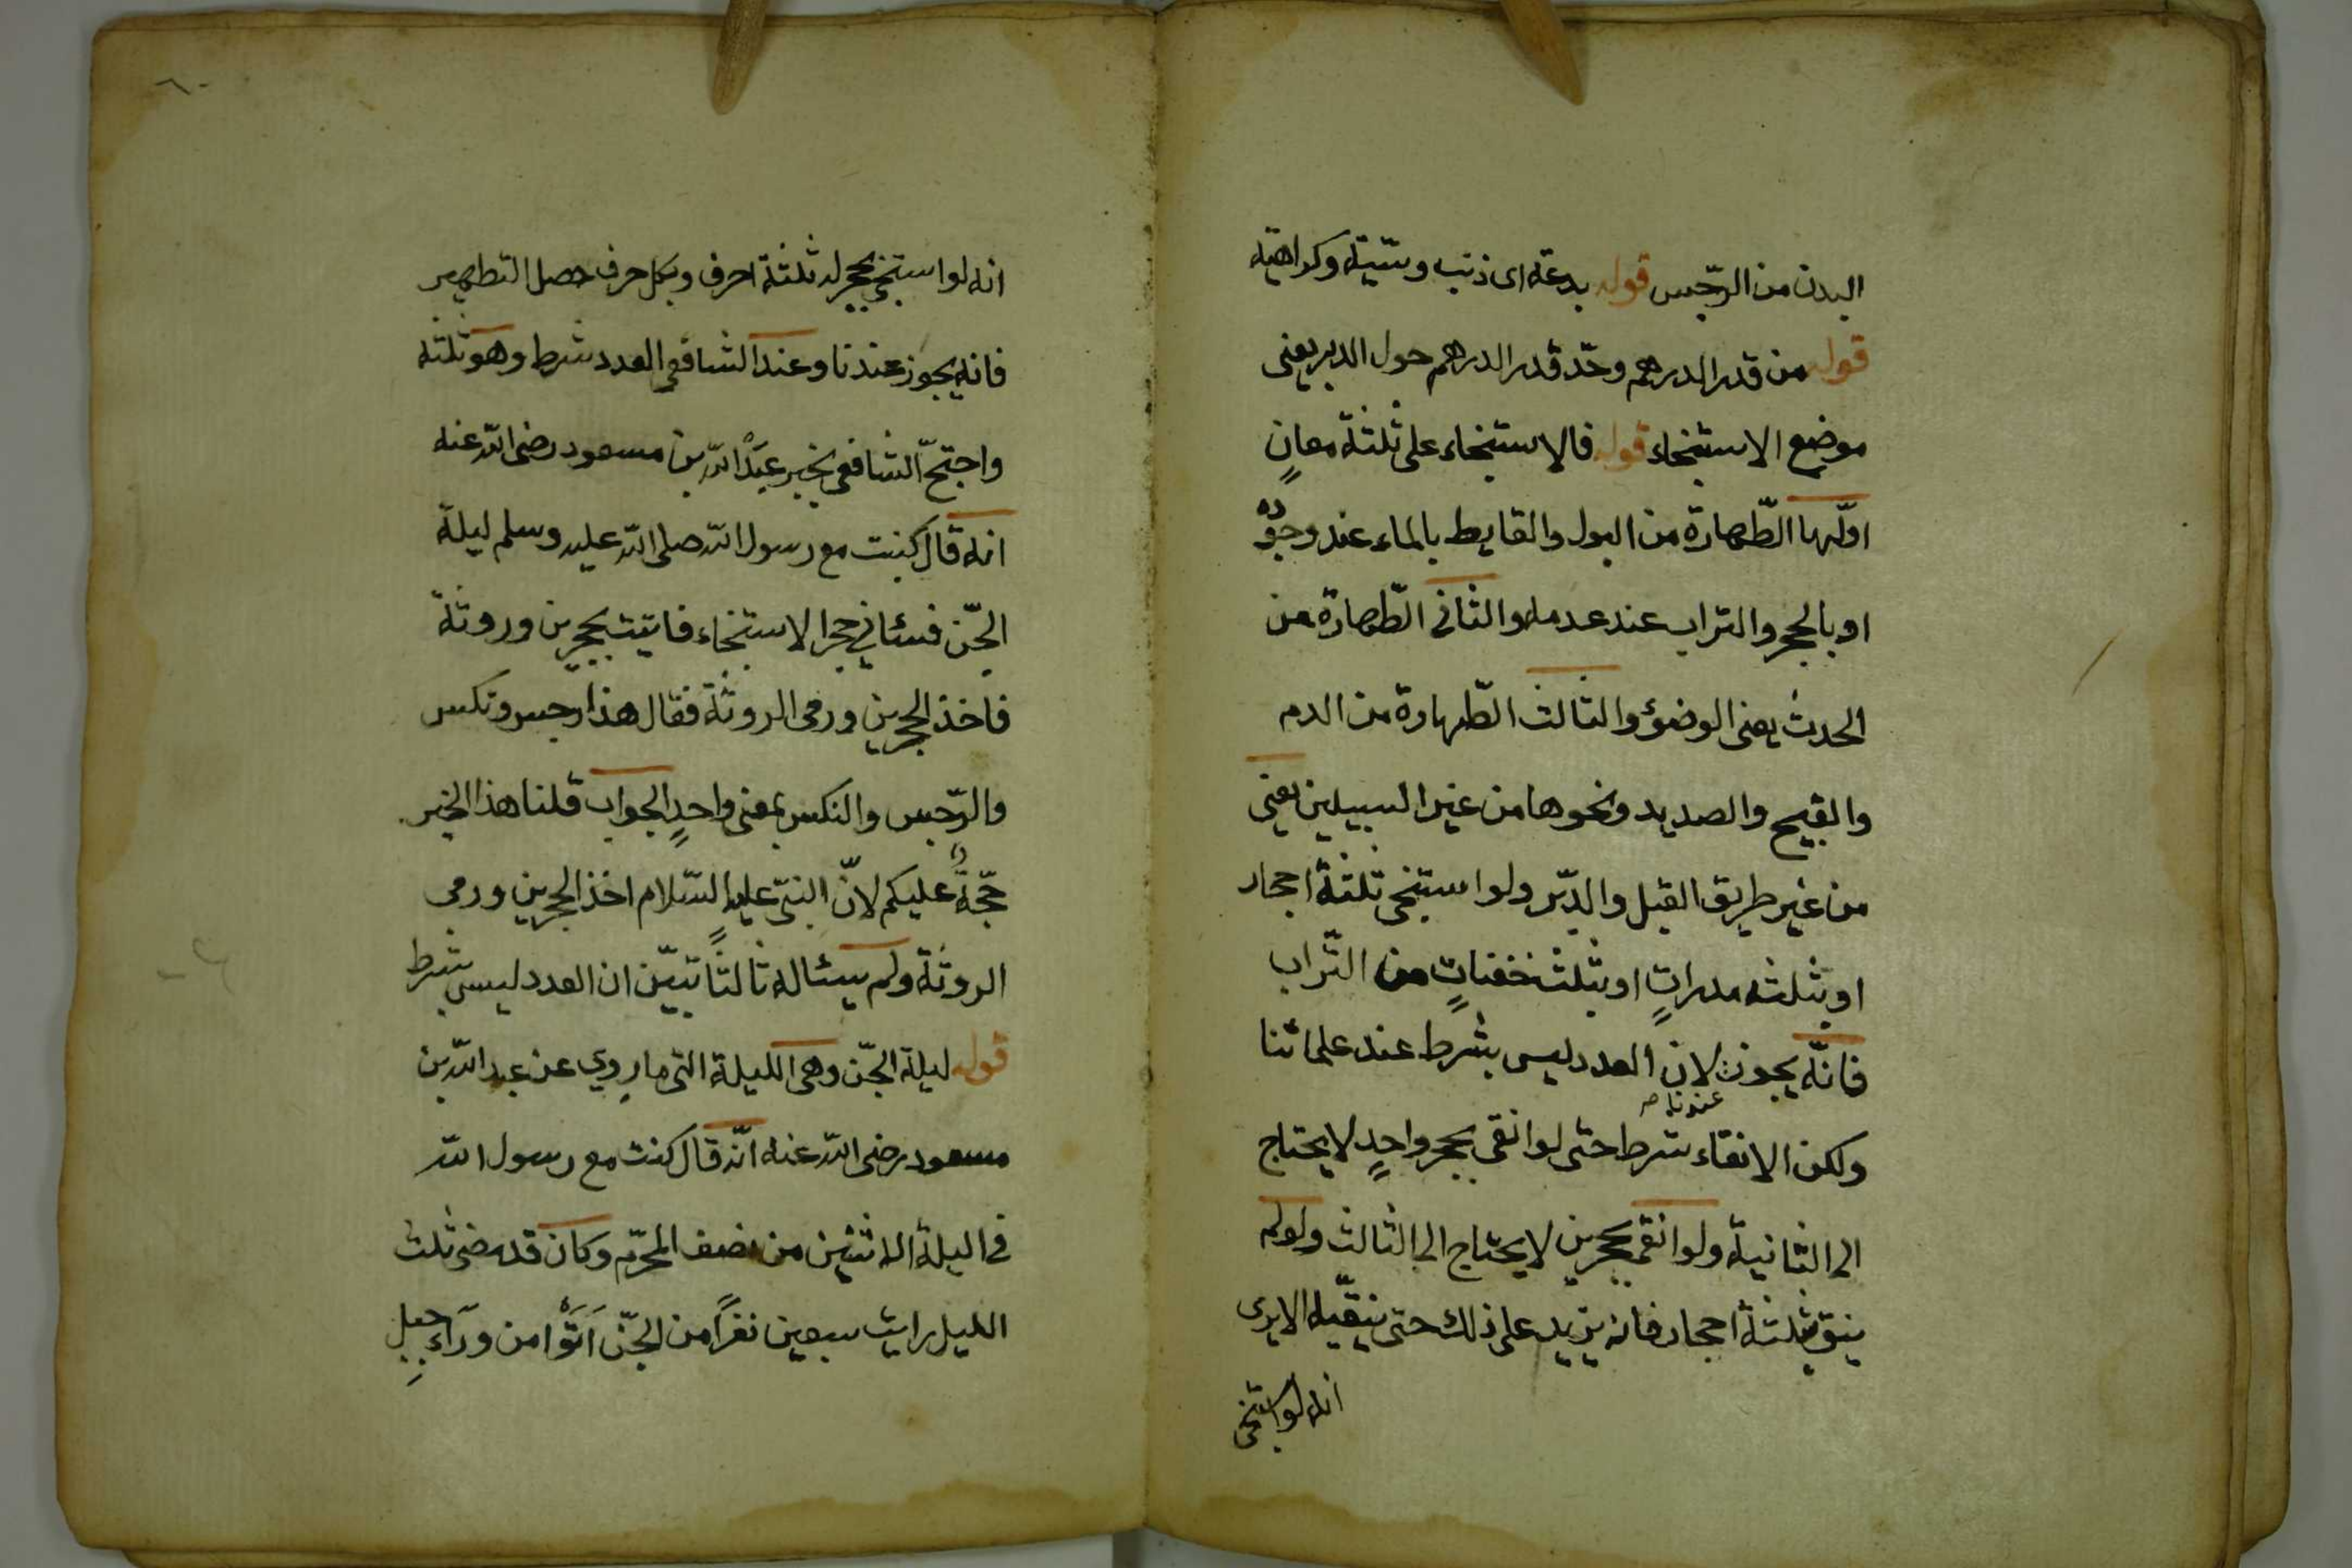 البدن من الرّجس قوله بدعة اى ذنب وسّيئة وكراهية
قوله من قدر الدرهم وحّد قدر الدرهم حول الدبر يعنى
موضع الاستنجاء قوله فالاستنجاء على ثلثة معانٍ
اوّلها الطّهارة من البول والغايط بالماء عند وجوده
او بالحجر والتراب عند عدمه والثانى الطّهارة من
الحدث يعنى الوضوٴ والثالث الطّهارة من الدم
والقيح والصديد ونحوها من غير السبيلين يعنى
من غير طريق القبل والدّبر ولو استنجى ثلثة احجار
او بثلثه مدراتٍ او بثلث خفناتٍ من التّراب
فانّه يجوز لان العدد ليس بشرط عند علمائنا
عندنا صح
ولكن الانقاء شرط حتى لو انقى بحجر واحدٍ لا يحتاج
الى الثانية ولو انقى بحجرين لا يحتاج الى الثالث ولو لم
ينق بثلثة احجار فانه يزيد على ذلك حتى ينقّيه الا يرى
انه لو استنجى
٦٠
انه لو استنجى بحجر له ثلثة احرف وبكل حرف حصل التطهير
فانه يجوز عندنا وعند الشافعى العدد شرط وهو ثلثه
واحتجّ الشافعى بخبر عبْدالله بن مسعود رضى الله عنه
انه قال كنت مع رسول الله صلى الله عليه وسلم ليلة
الجّن فسئانى حجرا لاستنجاء فاتيت بحجرين وروثة
فاخذ الحجرين ورمى الروثة فقال هذا رجس ونكس
والرّجس والنكس بمعنى واحدٍ الجواب قلنا هذا الخبر
حجّةٌ عليكم لانّ النبىّ عليه السّلام اخذ الحجرين ورمى
الروثة ولم يسئاله ثالثاً تبيّن ان العدد ليس بشرط
قوله ليلة الجّن وهى الليلة التى ما رِوي عن عبد الله بن
مسعود رضى الله عنه انّه قال كنت مع رسول الله
فى اليلة الاثنين من نصف المحرّم وكان قد مضى ثلث
الليل رايت سبعين نفراً من الجنّ اَتَوْا من ورَآءِ جبلٍ